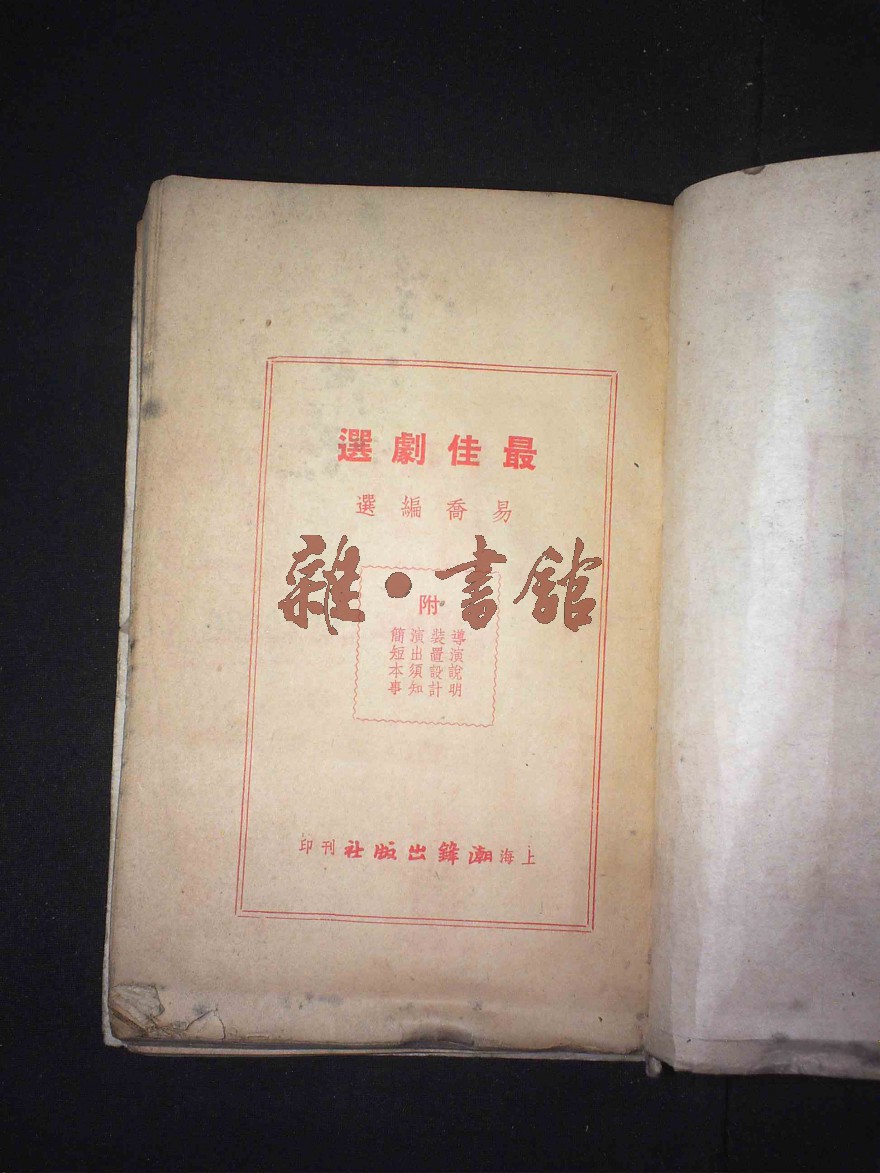 最佳劇選
易喬編選
雜·書館
附
導演說明
裝置設計
演出須知
簡短本事
上海潮鋒出版社刊印